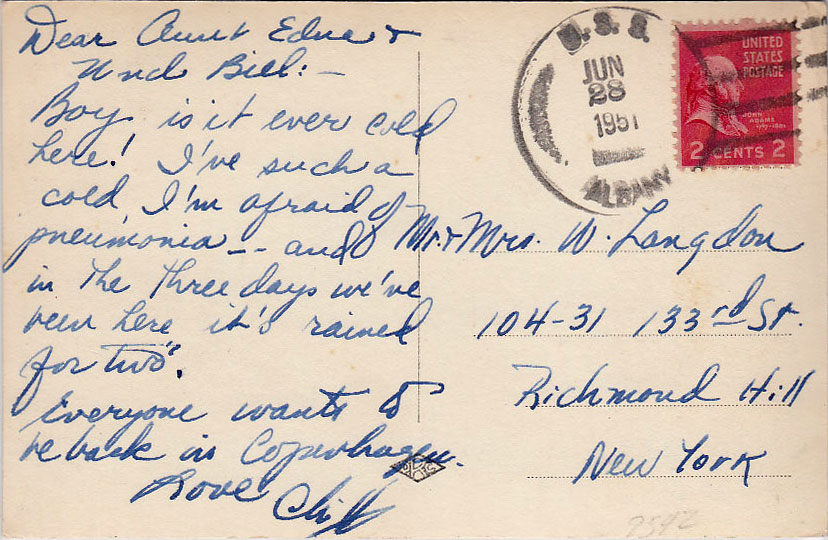 Dear Aunt Edna &
Uncl Bill:-
Boy is it ever cold
here! I've such a
cold I'm afraid of
pneumonia -- and
in the three days we've
been here it's rained
for two".
Everyone wants to
be back in Copenhagen.
Love
Cliff
U.S.S.
JUN
28
1951
ALBANY
UNITED
STATES
POSTAGE
JOHN
ADAMS
1797-1801
2 CENTS 2
Mr. & Mrs. W. Langdon
104-31 133rd St.
Richmond Hill
New York